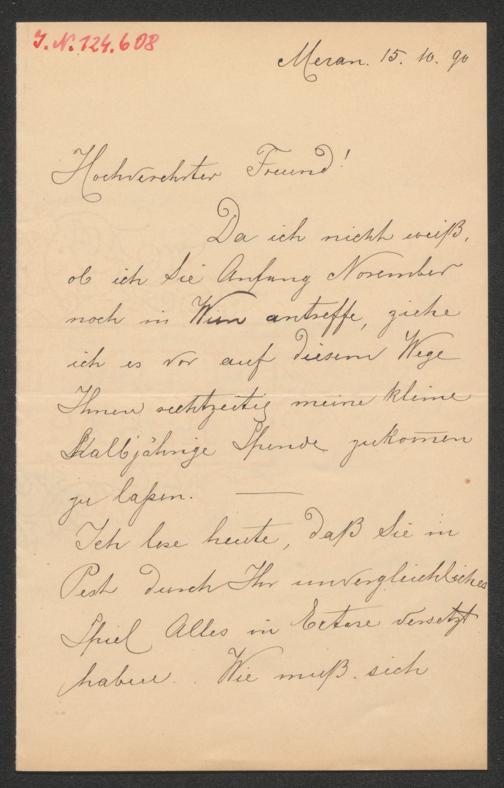 J. N. 124.608
Meran. 15. 10. 90
Hochverehrter Freund!
Da ich nicht weiß,
ob ich Sie Anfang November
noch in Wien antreffe, ziehe
ich es vor auf diesem Wege
Ihnen rechtzeitig meine kleine
halbjährige Spende zukom̅en
zu laßen. —
Ich lese heute, daß Sie in
Pest durch Ihr unvergleichliches
Spiel Alles in Extase versetzt
haben. Wie muß sich